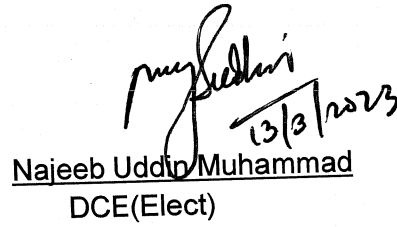 13/3/2023
Najeeb Uddin Muhammad
DCE(Elect)